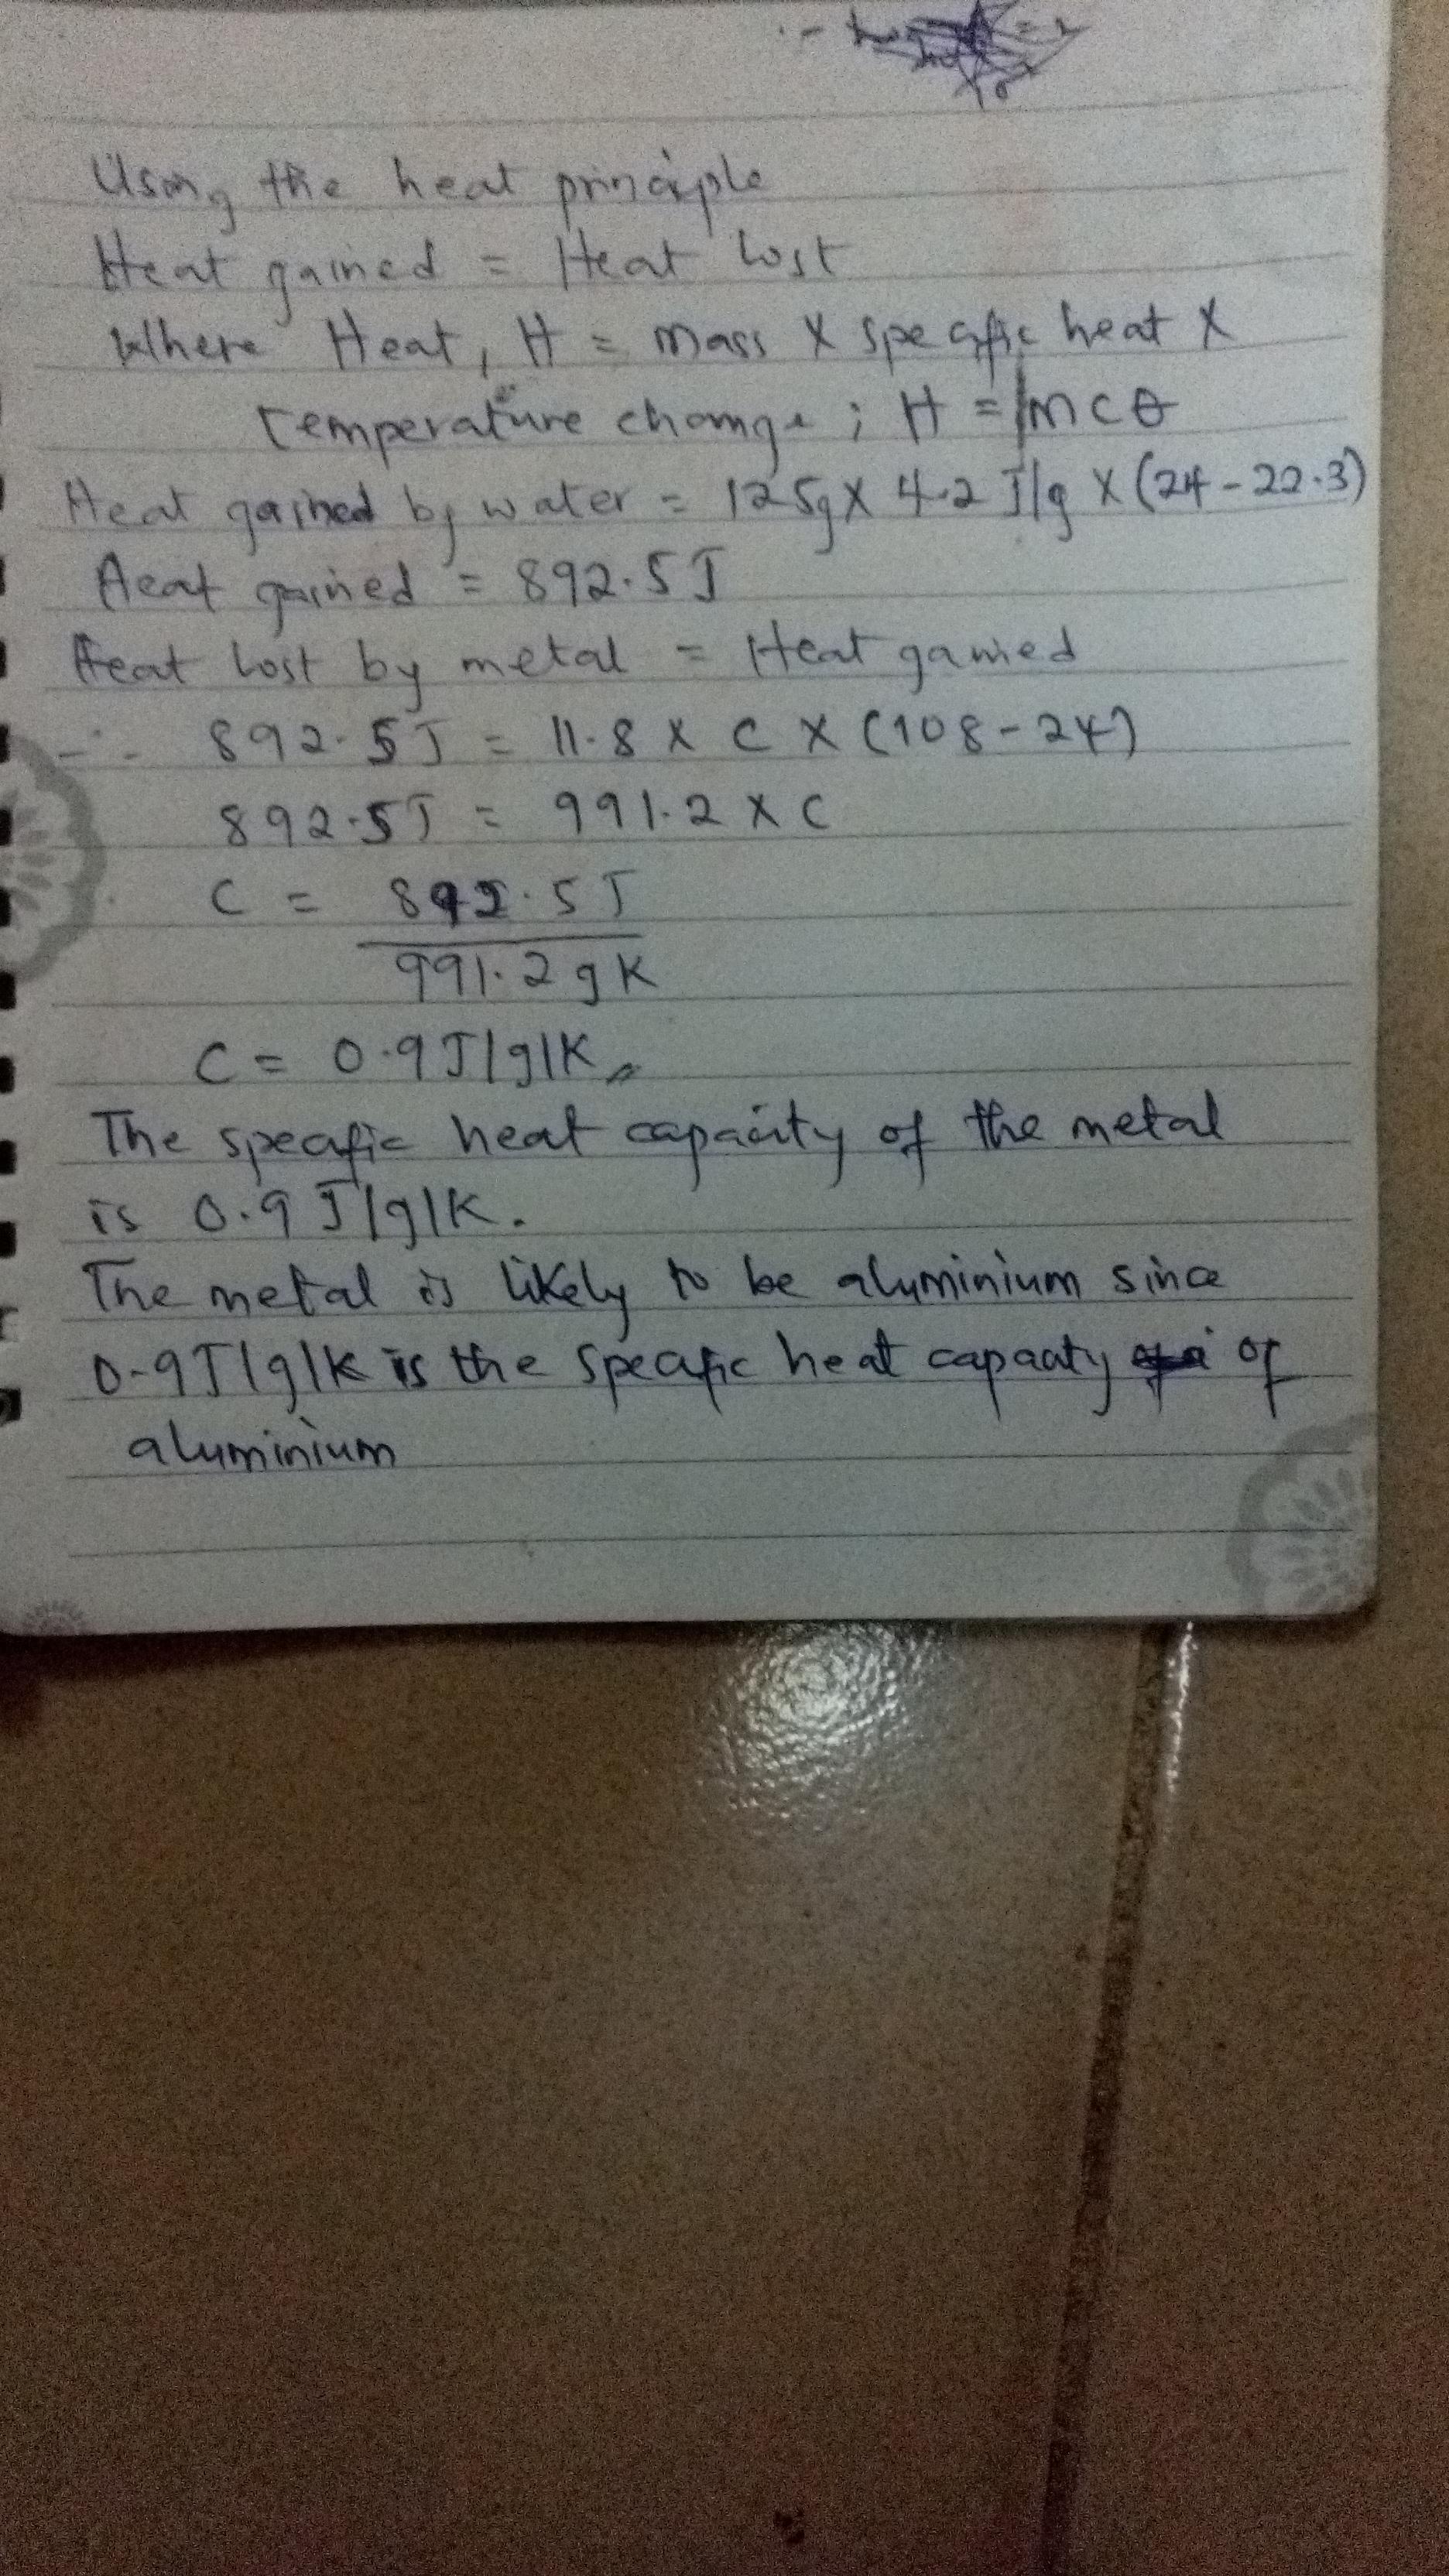 Using the heat principle
Heat gained = Heat lost
Where Heat, H = mass X specific heat X
temperature change ; H = mcθ
Heat gained by water = 125g X 4.2 J/g X (24 - 22.3)
Heat gained = 892.5 J
Heat lost by metal = Heat gained
∴ 892.5 J = 11.8 X C X (108 - 24)
892.5 J = 991.2 X C
C = 892.5 J
991.2 g K
C = 0.9 J/g/K
The specific heat capacity of the metal
is 0.9 J/g/K.
The metal is likely to be aluminium since
0.9 J/g/K is the specific heat capacity of
aluminium